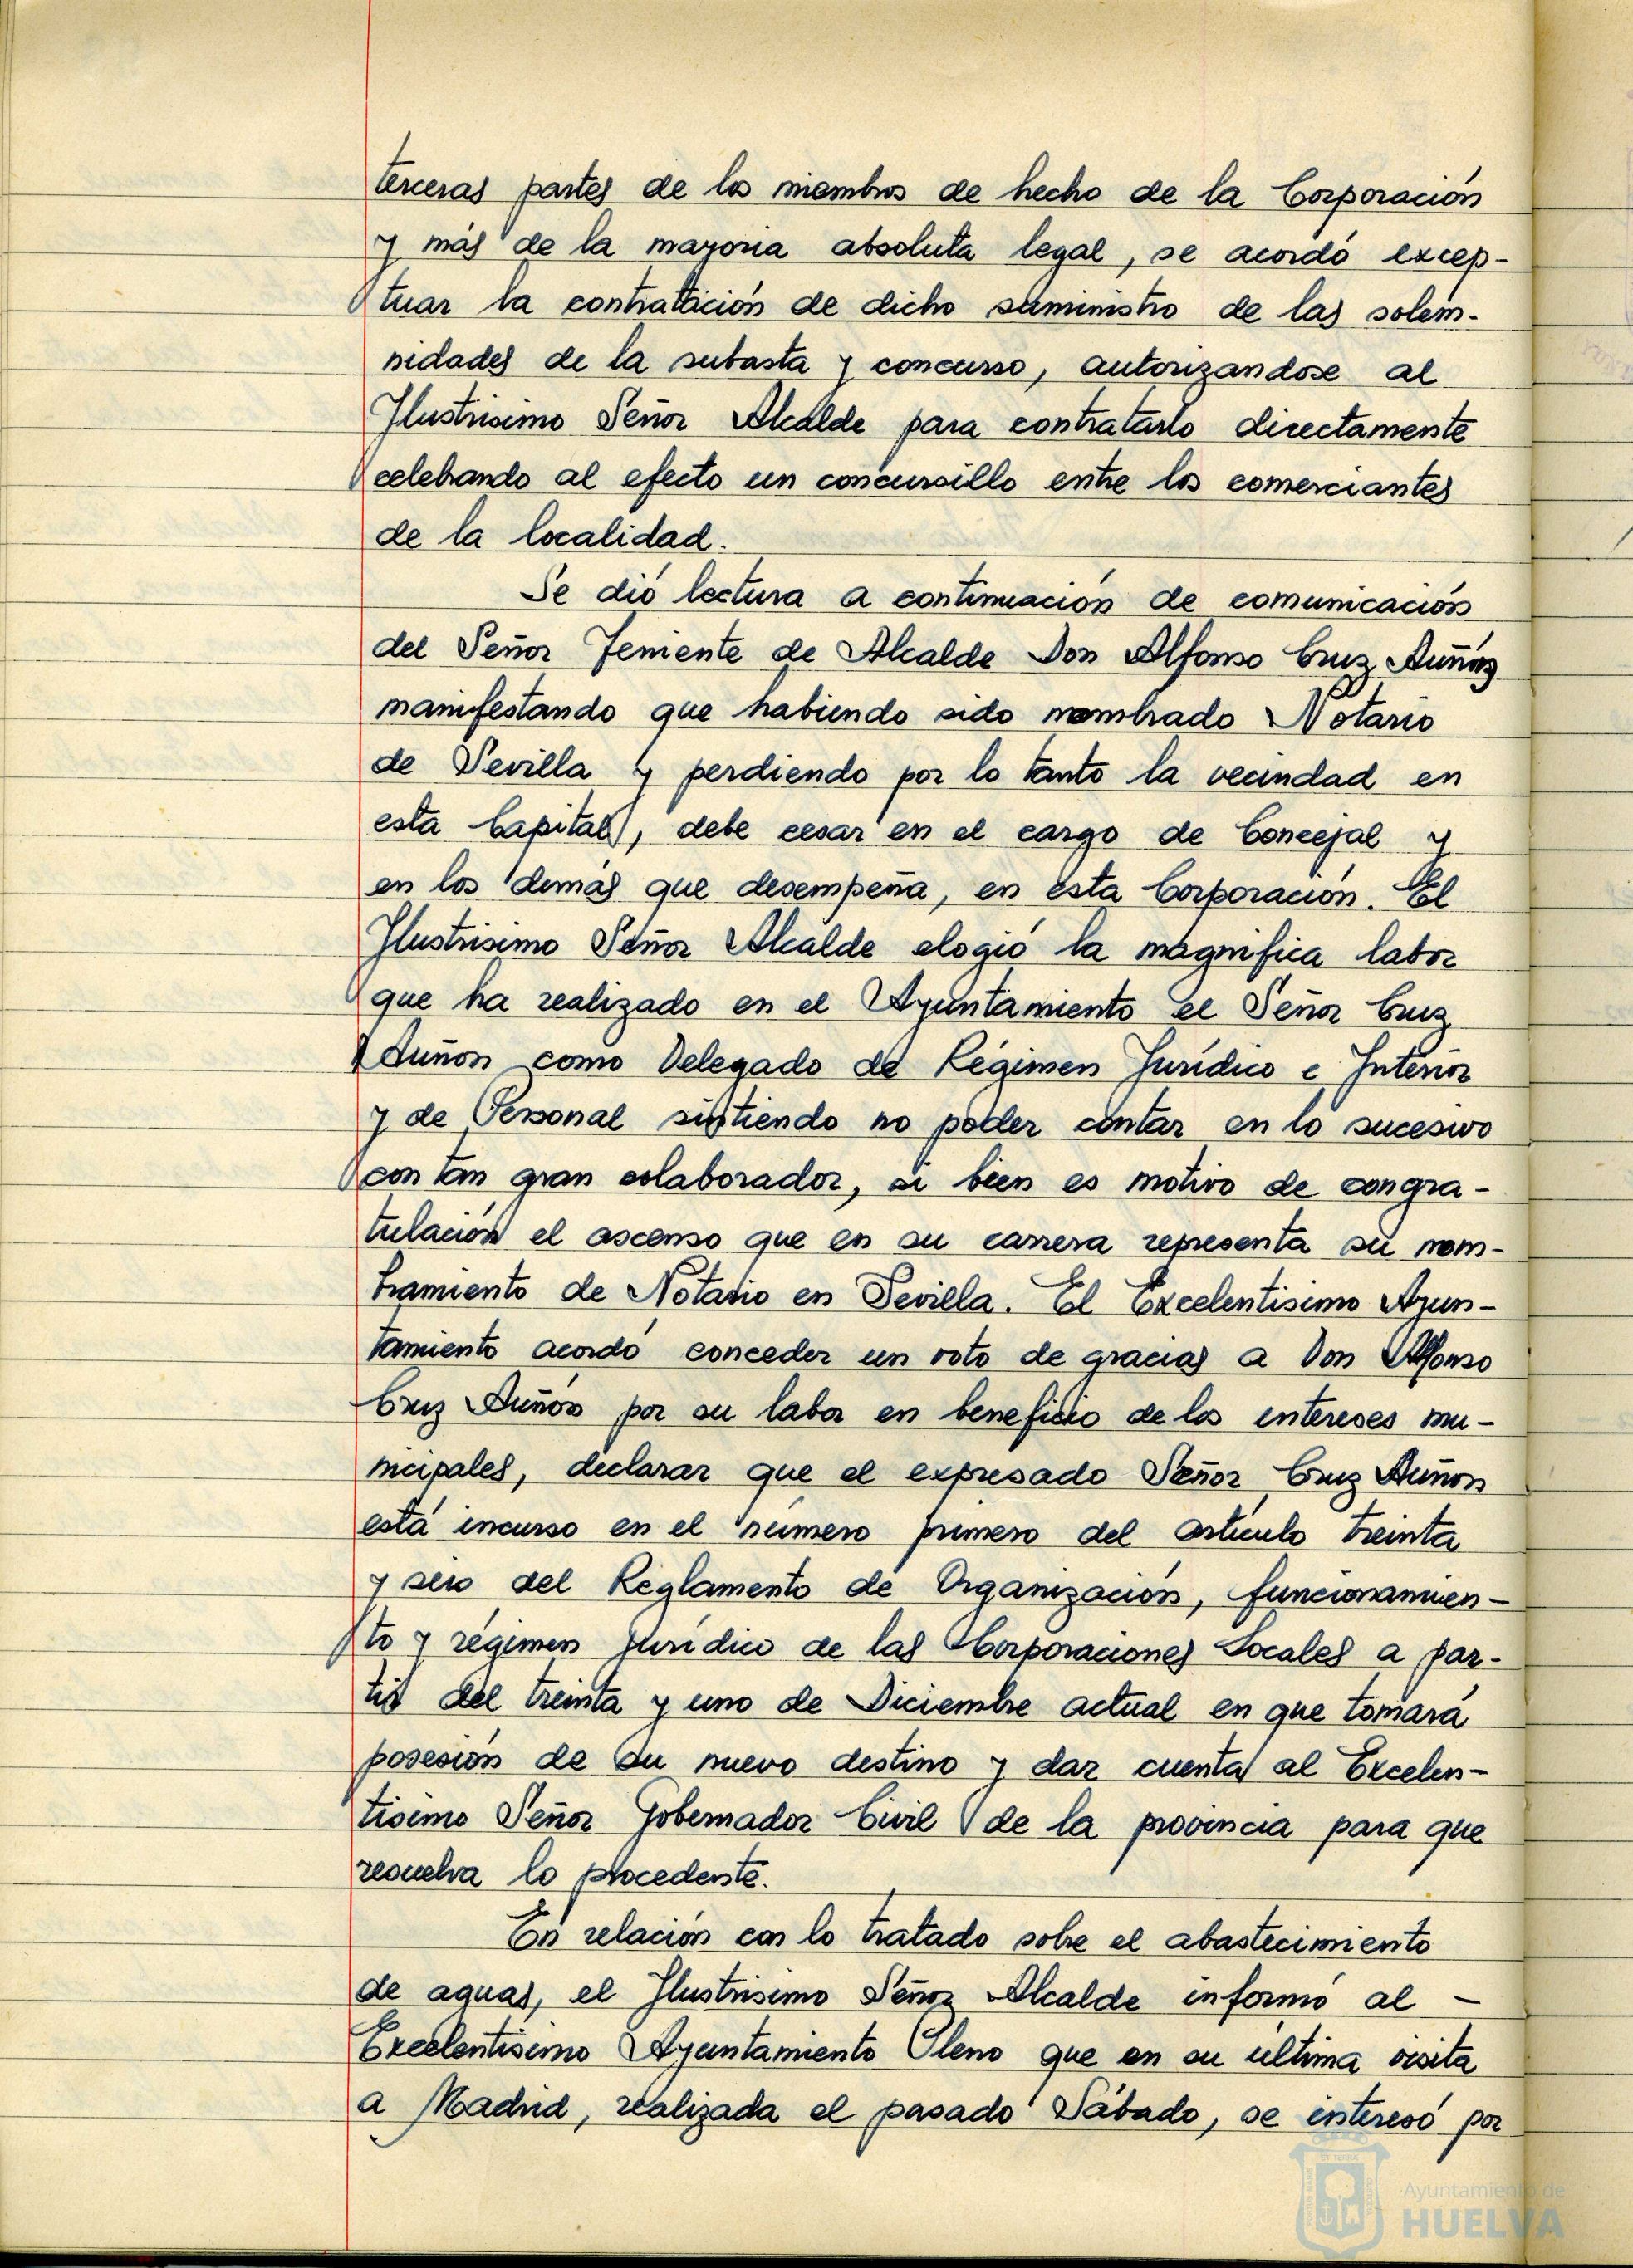 terceras partes de los miembros de hecho de la Corporación
y más de la mayoria absoluta legal, se acordó excep-
tuar la contratación de dicho suministro de las solem-
nidades de la subasta y concurso, autorizandose al
Ilustrisimo Señor Alcalde para contratarlo directamente
celebrando al efecto un concursillo entre los comerciantes
de la localidad.
Se dió lectura a continuación de comunicación
del Señor Teniente de Alcalde Don Alfonso Cruz Auñón
manifestando que habiendo sido nombrado Notario
de Sevilla y perdiendo por lo tanto la vecindad en
esta Capital, debe cesar en el cargo de Concejal y
en los demás que desempeña, en esta Corporación. El
Ilustrisimo Señor Alcalde elogió la magnifica labor
que ha realizado en el Ayuntamiento el Señor Cruz
Auñón como Delegado de Régimen Jurídico e Interior
y de Personal sintiendo no poder contar en lo sucesivo
con tan gran colaborador, si bien es motivo de congra-
tulación el ascenso que en su carrera representa su nom-
bramiento de Notario en Sevilla. El Excelentisimo Ayun-
tamiento acordó conceder un voto de gracias a Don Alfonso
Cruz Auñón por su labor en beneficio de los intereses mu-
nicipales, declarar que el expresado Señor Cruz Auñon
está incurso en el número primero del artículo treinta
y seis del Reglamento de Organización, funcionamien-
to y régimen jurídico de las Corporaciones Locales a par-
tir del treinta y uno de Diciembre actual en que tomará
posesión de su nuevo destino y dar cuenta al Excelen-
tisimo Señor Gobernador Civil de la provincia para que
resuelva lo procedente.
En relación con lo tratado sobre el abastecimiento
de aguas, el Ilustrisimo Señor Alcalde informó al -
Excelentisimo Ayuntamiento Pleno que en su última visita
a Madrid, realizada el pasado Sábado, se interesó por
Ayuntamiento de
HUELVA